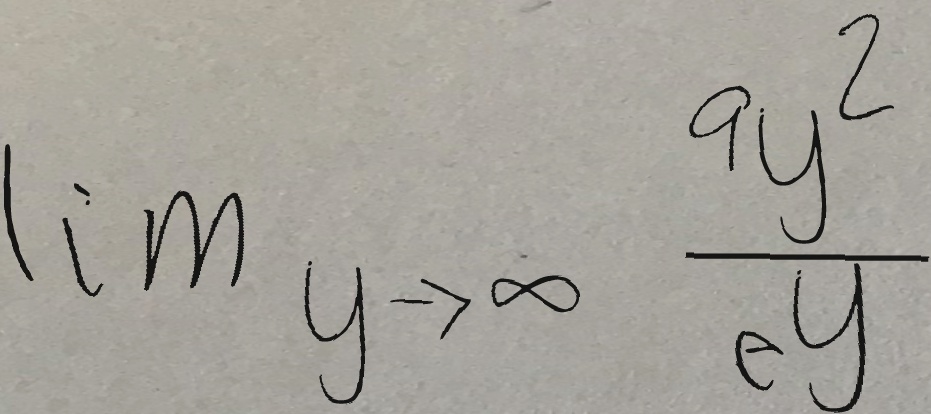 lim y→∞ 9y² / e^y